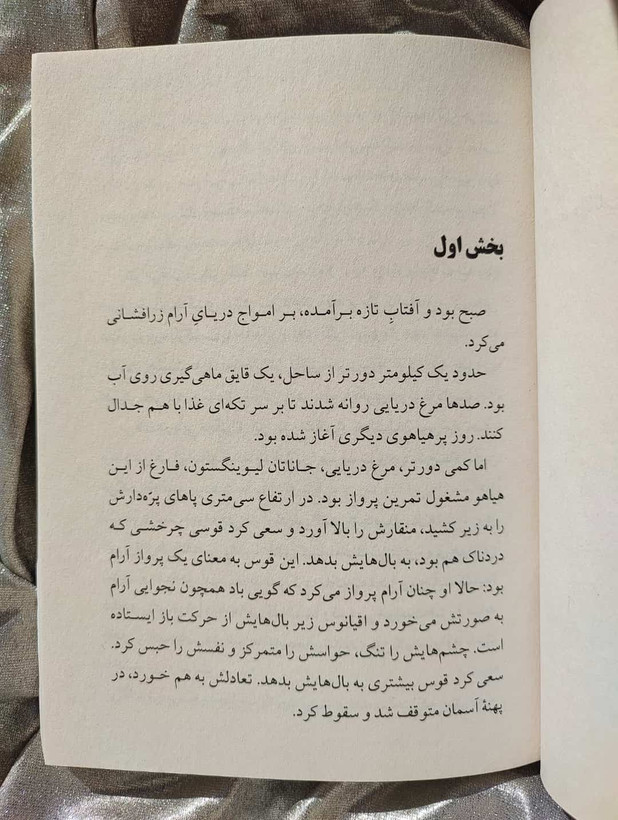 بخش اول
صبح بود و آفتابِ تازه برآمده، بر امواج دریایِ آرام زرافشانی
می‌کرد.
حدود یک کیلومتر دورتر از ساحل، یک قایق ماهی‌گیری روی آب
بود. صدها مرغ دریایی روانه شدند تا بر سر تکه‌ای غذا با هم جدال
کنند. روز پرهیاهوی دیگری آغاز شده بود.
اما کمی دورتر، مرغ دریایی، جاناتان لیوینگستون، فارغ از این
هیاهو مشغول تمرین پرواز بود. در ارتفاع سی‌متری پاهای پرّه‌دارش
را به زیر کشید، منقارش را بالا آورد و سعی کرد قوسی چرخشی که
دردناک هم بود، به بال‌هایش بدهد. این قوس به معنای یک پرواز آرام
بود: حالا او چنان آرام پرواز می‌کرد که گویی باد همچون نجوایی آرام
به صورتش می‌خورد و اقیانوس زیر بال‌هایش از حرکت باز ایستاده
است. چشم‌هایش را تنگ، حواسش را متمرکز و نفسش را حبس کرد.
سعی کرد قوس بیشتری به بال‌هایش بدهد. تعادلش به هم خورد، در
پهنهٔ آسمان متوقف شد و سقوط کرد.